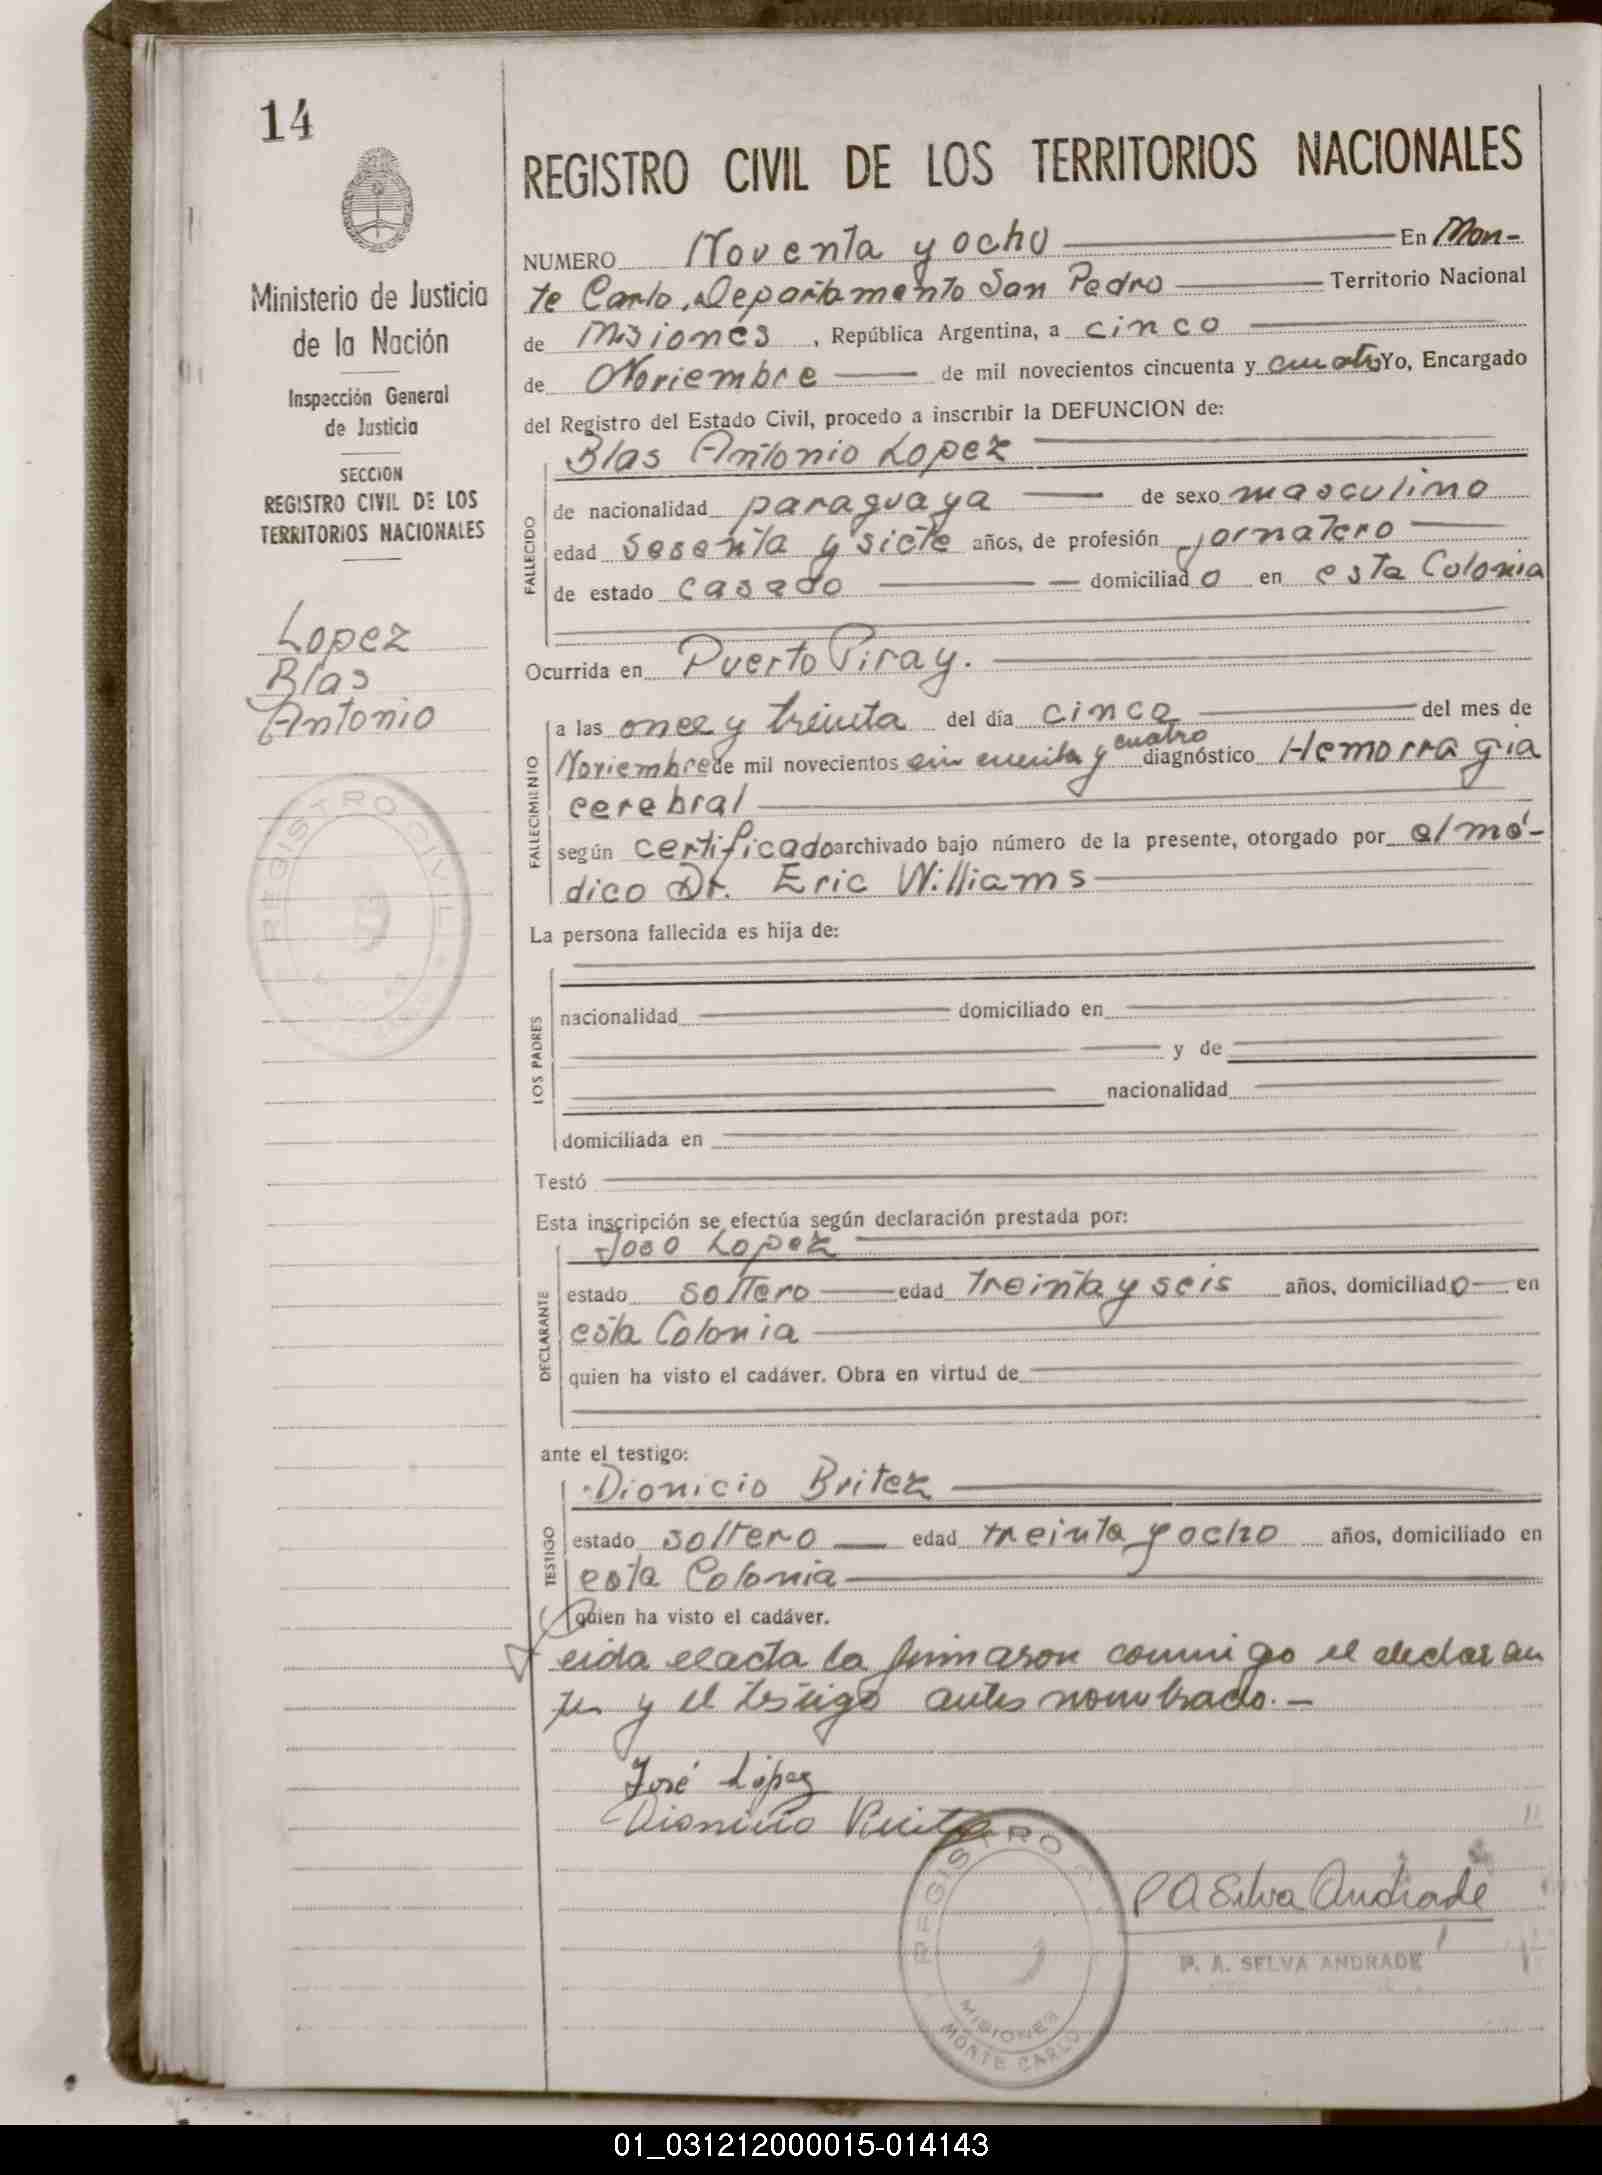 14
Ministerio de Justicia
de la Nación
Inspección General
de Justicia
SECCION
REGISTRO CIVIL DE LOS
TERRITORIOS NACIONALES
Lopez
Blas
Antonio
REGISTRO CIVIL
REGISTRO CIVIL DE LOS TERRITORIOS NACIONALES
NUMERO Noventa y ocho En Mon-
te Carlo, Departamento San Pedro Territorio Nacional
de Misiones, República Argentina, a cinco
de Noviembre de mil novecientos cincuenta y cuatro Yo, Encargado
del Registro del Estado Civil, procedo a inscribir la DEFUNCION de:
Blas Antonio Lopez
FALLECIDO
de nacionalidad paraguaya de sexo masculino
edad sesenta y siete años, de profesión jornalero
de estado casado domiciliado en esta Colonia
Ocurrida en Puerto Piray.
FALLECIMIENTO
a las once y treinta del día cinco del mes de
Noviembre de mil novecientos cincuenta y cuatro diagnóstico Hemorragia
cerebral
según certificado archivado bajo número de la presente, otorgado por el mé-
dico Dr. Eric Williams
La persona fallecida es hija de:
LOS PADRES
nacionalidad domiciliado en
y de
nacionalidad
domiciliada en
Testó
Esta inscripción se efectúa según declaración prestada por:
DECLARANTE
José Lopez
estado soltero edad treinta y seis años, domiciliado en
esta Colonia
quien ha visto el cadáver. Obra en virtud de
ante el testigo:
TESTIGO
Dionicio Britez
estado soltero edad treinta y ocho años, domiciliado en
esta Colonia
quien ha visto el cadáver.
Leida el acta la firmaron conmigo el declaran
te y el testigo antes nombrado.-
José López
Dionicio Britez
P A Selva Andrade
P. A. SELVA ANDRADE
REGISTRO
MISIONES
MONTE CARLO
01_031212000015-014143